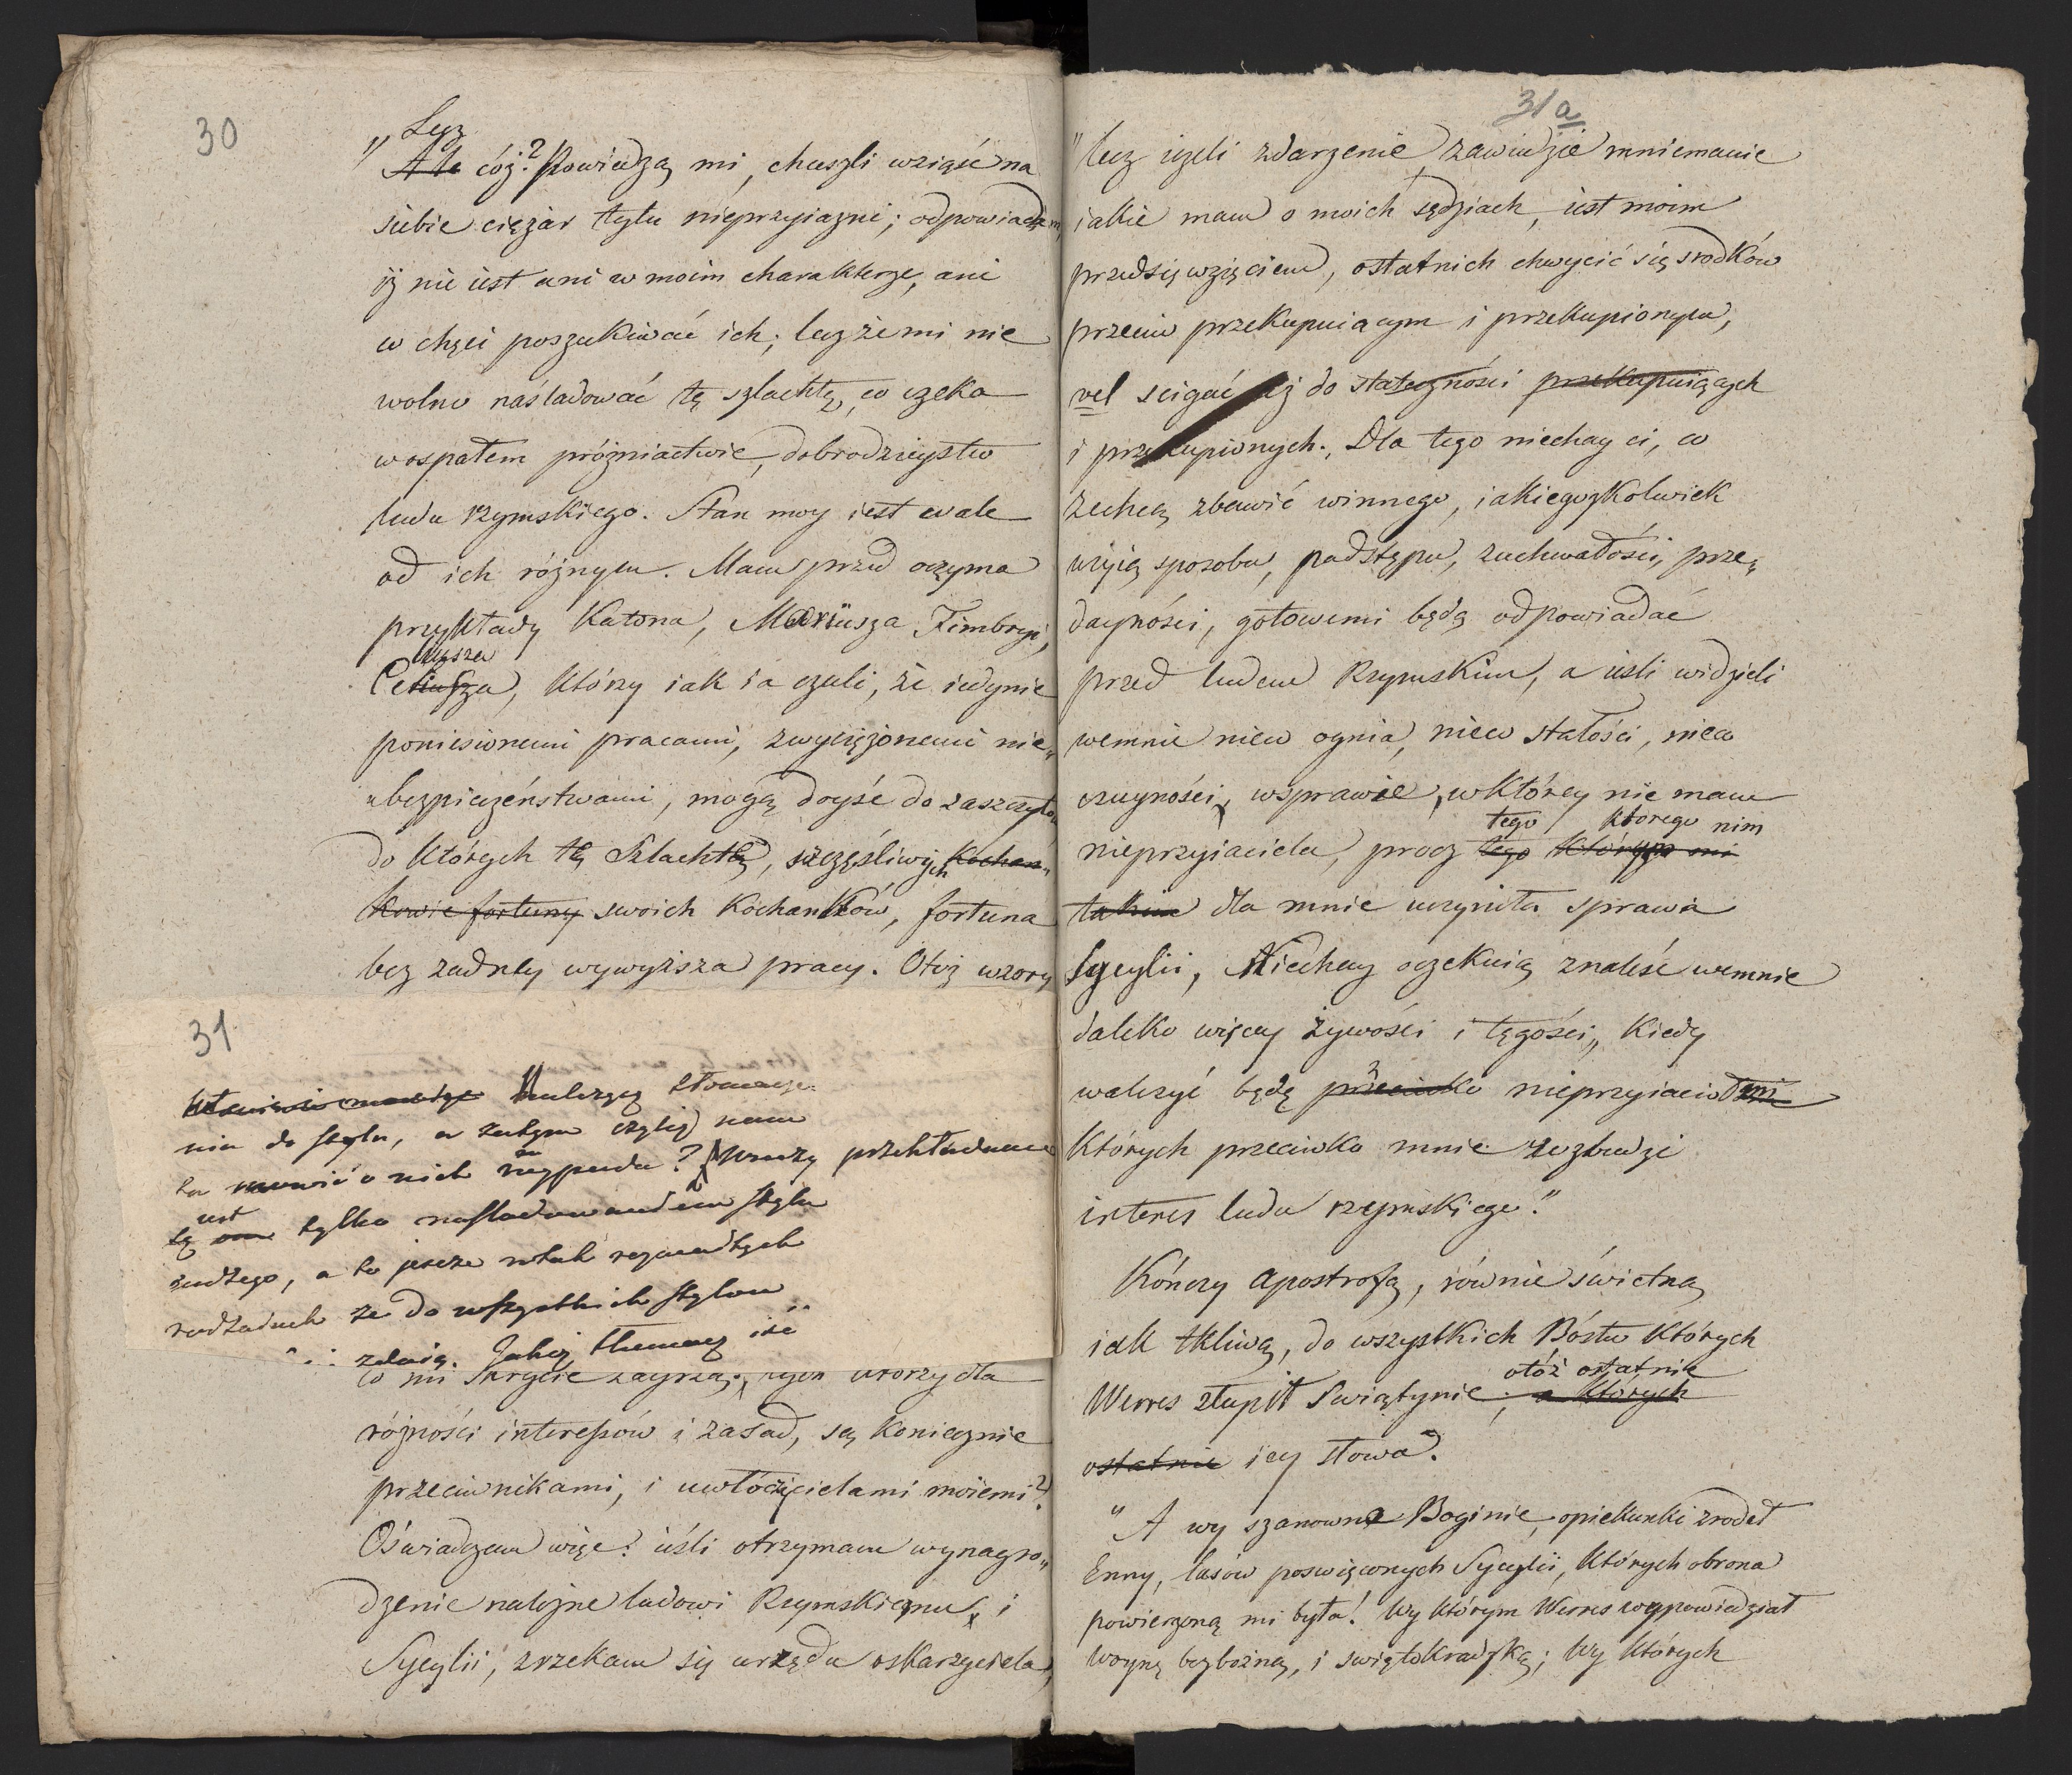 30
Lecz
" A le cóż? Powiedzą mi, chceszli wziąść na
siebie ciężar tylu nieprzyiazni; odpowiadam,
iż nie iest ani w moim charakterze, ani
w chęci poszukiwać ich; lecz że mi nie
wolno naśladować tę szlachtę, co czeka
w ospałem próżniactwie, dobrodzieystw
ludu rzymskiego. Stan moy iest wcale
od ich różnym. Mam przed oczyma
przykłady Katona, Mariusza Fimbryi,
Celiusza, którzy iak ia czuli, że iedynie
poniesionemi pracami, zwyciężonemi nie„
„bezpieczeństwami, mogą doyść do zaszczytów
do których tę Szlachtę, szczęśliwych kochan„
kowie fortuny swoich kochanków, fortuna
bez żadney wywyższa pracy. Otóż wzory
31
tylko naśladowaniem stylu
cudzego, a to jescze w tak rozmaitych
rodzaiach ze do wszystkich stylow
zdaią. Jakiż tłumacz iść
co mi skrycie zayrzą; tych utorzy dla
różności interessów i zasad, są koniecznie
przeciwnikami, i uwłóczycielami moiemi?
Oświadczam więc: iesli otrzymam wynagro„
dzenie należne ludowi Rzymskiemu, i
Sycylii, zrzekam się urzędu oskarzyciela,
31 a
" lecz ieżeli zdarzenie zawiedzie mniemanie
iakie mam o moich sędziach, iest moim
przedsięwzięciem, ostatnich chwycić się srodków
przeciw przekupuiącym i przekupionym,
vel scigać aż do stateczności przekupuiących
i przekupionych. Dla tego niechay ci, co
zechcą zbawić winnego, iakiegożkolwiek
użyią sposobu, podstępu, zuchwałości, prze„
dayności, gotowemi będą odpowiadać
przed ludem Rzymskim, a iesli widzieli
wemnie niew ognia, niew stałości, niew
czuyności, wsprawie, wktórey nie mam
tego którego nim
nieprzyiaciela, procz tego którym mi
takim dla mnie uczyniła sprawa
Sycylii, Niechay oczekuią znaleść wemnie
daleko więcey żywości i tęgości„ kiedy
walczyć będę przeciwko nieprzyiaciołmi
których przeciwko mnie wzbudzi
interes ludu rzymskiego."
Kończy apostrofą, równie świetną
iak tkliwą, do wszystkich Bóstw których
otóż ostatnie
Werres złupił Swiątynie; a których
ostatnie iey słowa.
" A wy szanowne Boginie, opiekunki zrodeł
Enny, lasów poswięconych Sycylii, których obrona
powierzoną mi była! Wy którym Werres wypowiedział
woynę bezbożną, i swiętokradzką; Wy których